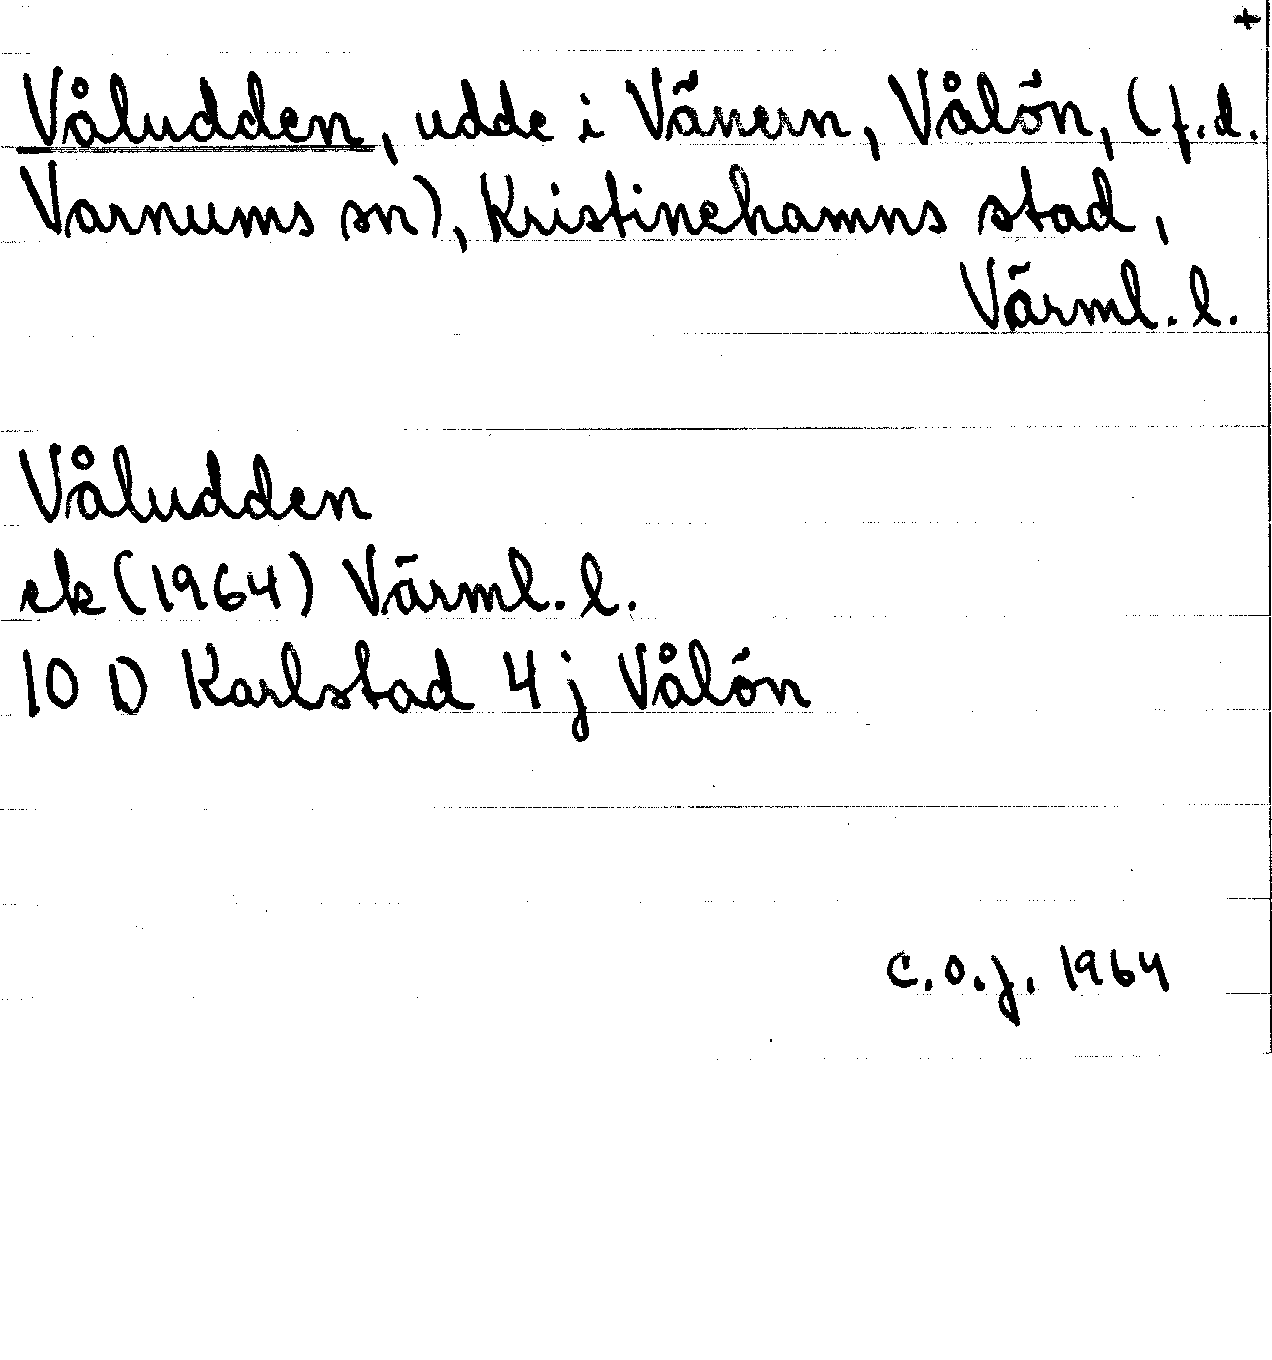 +
Våludden, udde i Vänern, Vålön, (f.d.
Varnums sn), Kristinehamns stad,
Värml. l.
Våludden
ek (1964) Värml. l.
10 D Karlstad 4 j Vålön
C.O.J. 1964